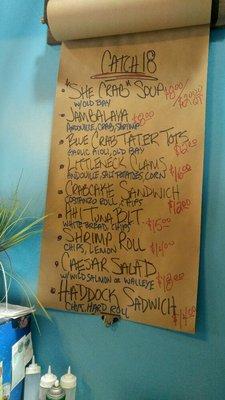 CATCH 18
"SHE CRAB" SOUP $8.00/
W/ OLD BAY
JAMBALAYA $8.00
ANDOUILLE, CRAB, SHRIMP
BLUE CRAB TATER TOTS
GARLIC AIOLI, OLD BAY
LITTLENECK CLAMS
ANDOUILLE, SALT POTATOES, CORN
CRABCAKE SANDWICH
COSTANZO ROLL, CHIPS
AHI TUNA BLT $15.00
WHITE BREAD, CHIPS
SHRIMP ROLL $14.00
CHIPS, LEMON
CAESAR SALAD
W/ WILD SALMON OR WALLEYE $18.00
HADDOCK SADWICH
HARD ROLL $14.00